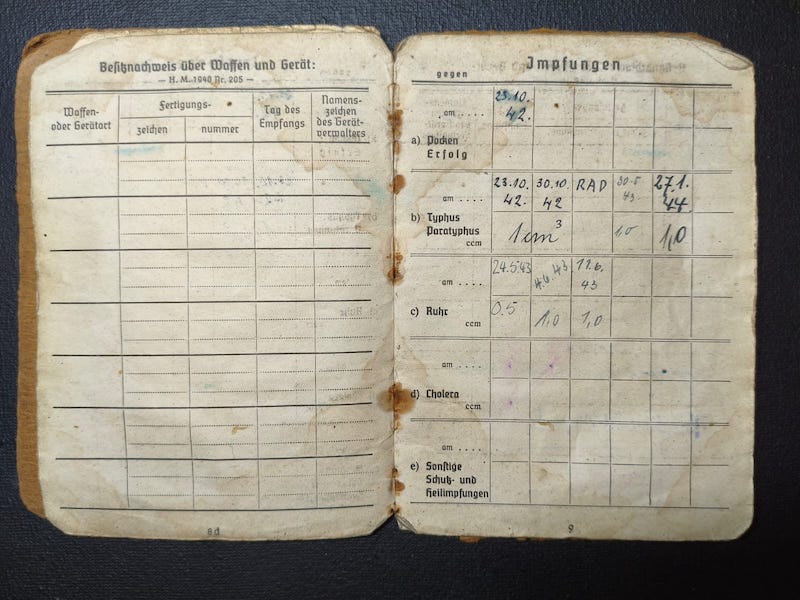 Besitznachweis über Waffen und Gerät:
— H. M. 1940 Nr. 205 —
Waffen-
oder Gerätart
Fertigungs-
zeichen
nummer
Tag des
Empfangs
Namens-
zeichen
des Gerät-
verwalters
8d
Impfungen
gegen
23.10.
am . . . . 42.
a) Pocken
Erfolg
23.10. 30.10. RAD 30.5 27.1.
am . . . . 42. 42 43 44.
b) Typhus
Paratyphus 1 cm³ 1,0 1,0
ccm
24.5.43 4.6.43 11.6.
am . . . . 43
c) Ruhr 0.5 1,0 1,0
ccm
am . . . .
d) Cholera
ccm
am . . . .
e) Sonstige
Schutz- und
Heilimpfungen
9